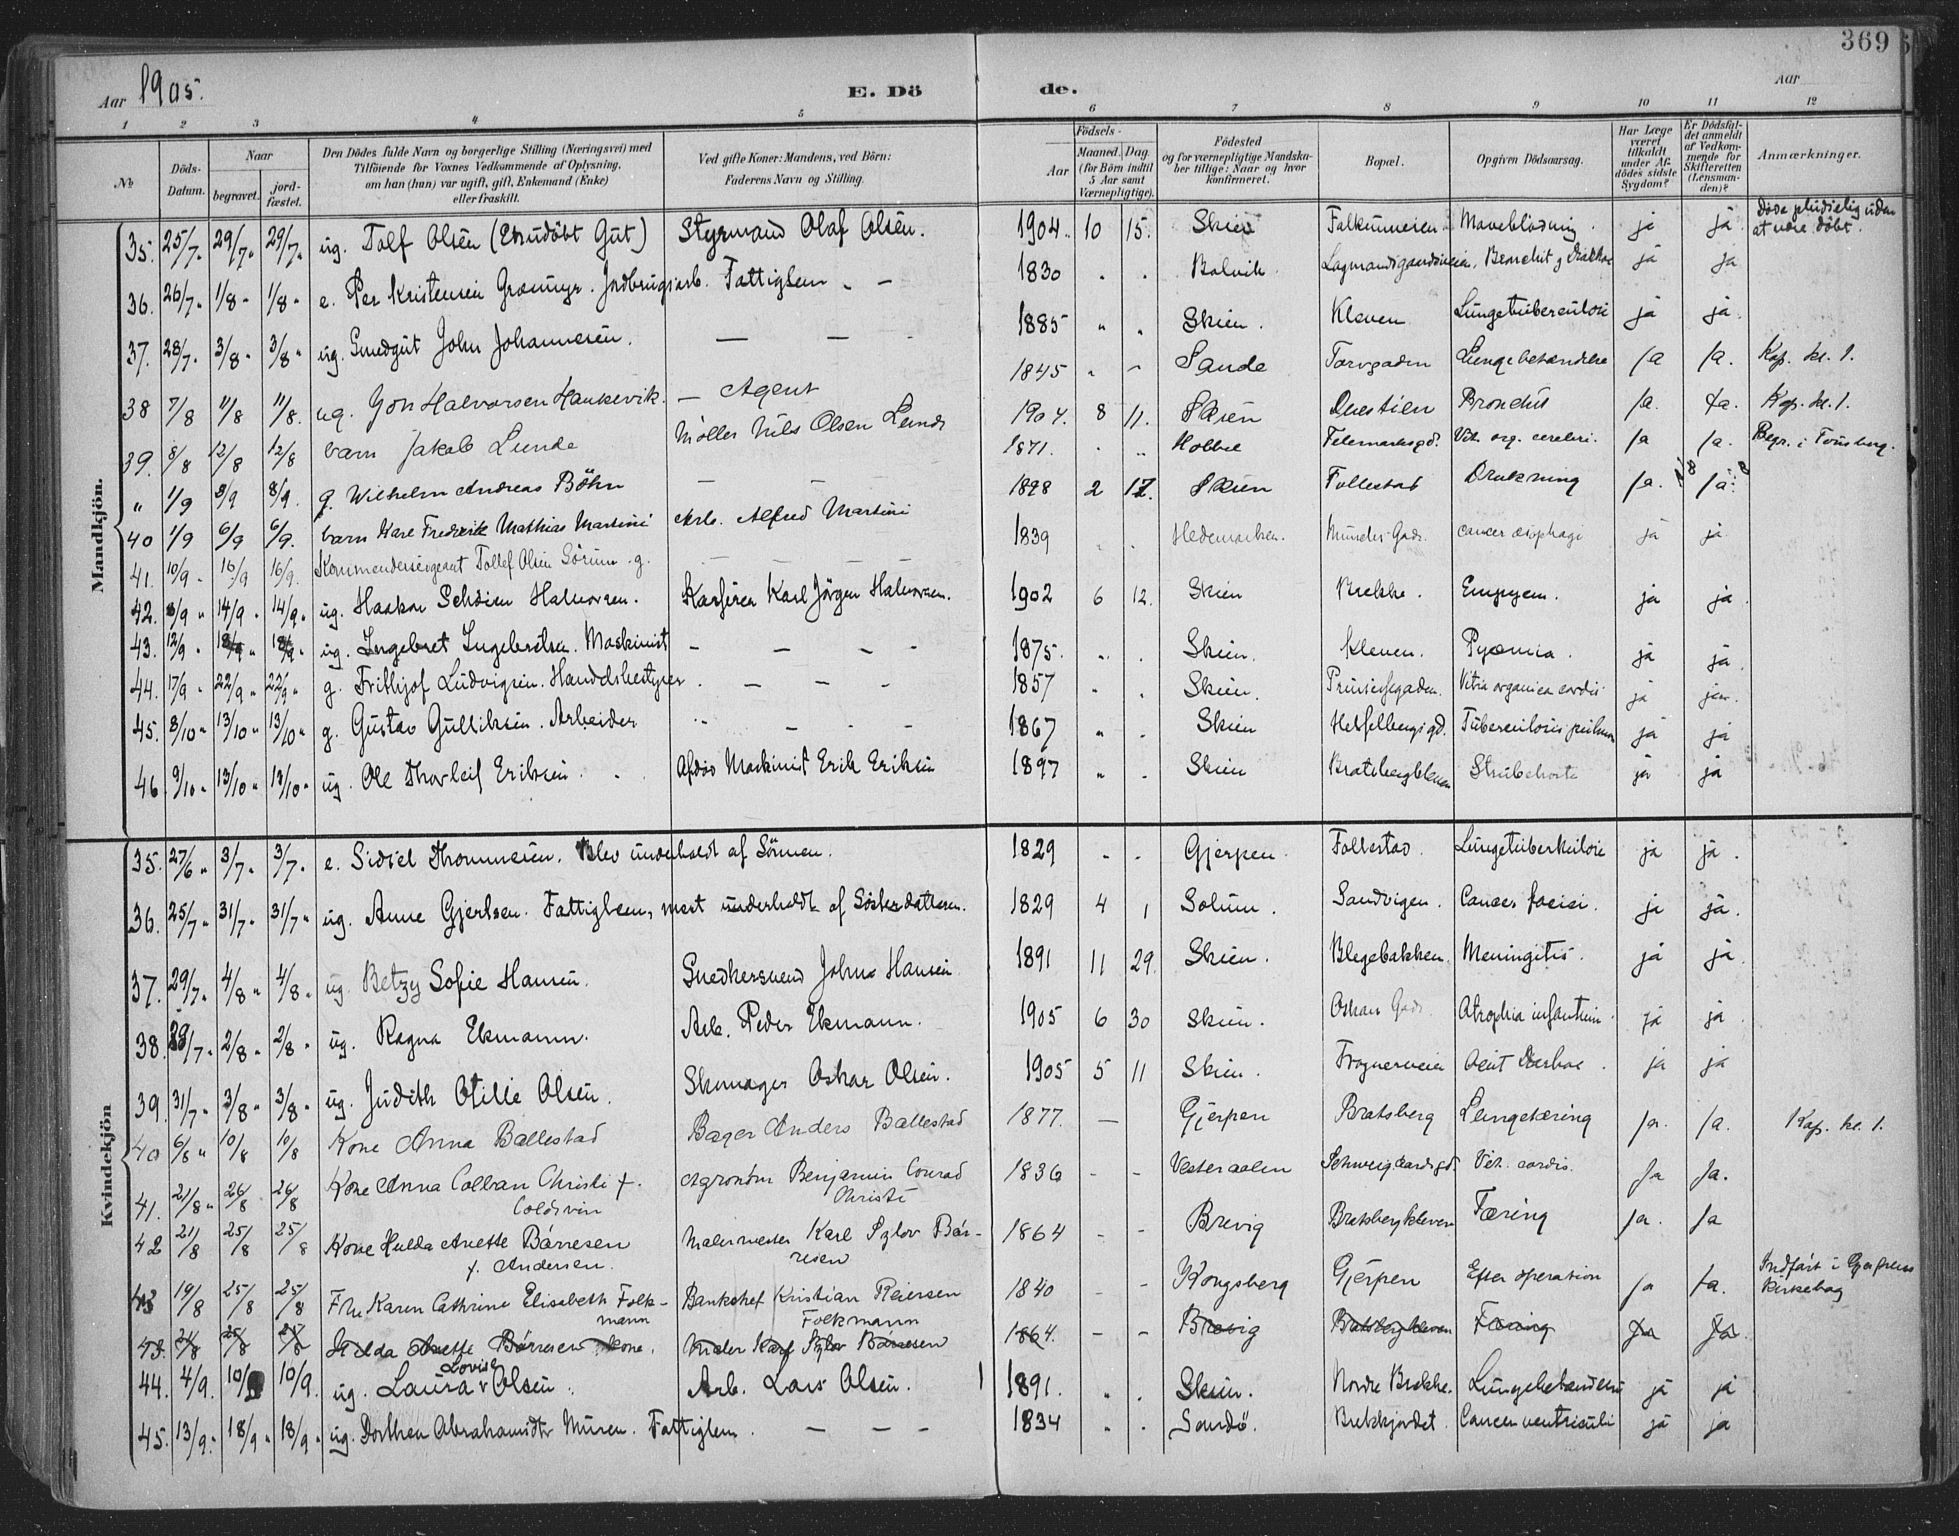 369
Aar 1905.
E. Dö
de.
Aar
1 2 3 4 5 6 7 8 9 10 11 12
№
Döds-Datum.
Naar
begravet.
jord-fæstet.
Den Dödes fulde Navn og borgerlige Stilling (Næringsvei) med
Tilföiende for Voxnes Vedkommende af Oplysning,
om han (hun) var ugift, gift, Enkemand (Enke)
eller fraskilt.
Ved gifte Koner: Mandens, ved Börn:
Faderens Navn og Stilling.
Födsels-
Aar
Maaned. Dag
(for Börn indtil
5 Aar samt
Værnepligtige).
Födested
og for værnepligtige Mandska-
ber tillige: Naar og hvor
konfirmeret.
Bopæl.
Opgiven Dödsaarsag.
Har Læge
været
tilkaldt
under Af-
dödes sidste
Sygdom?
Er Dödsfal-
det anmeldt
af Vedkom-
mende for
Skifteretten
(Lensman-
den)?
Anmærkninger.
Mandkjön.
35. 25/7 29/7 29/7 ug. Tolf Olsen (Ikudöbt Gut) Styrmand Olaf Olsen. 1904 10 15. Skien Falkumveien Maveblödning. ja ja Döde pludselig uden at være döbt.
36. 26/7 1/8 1/8 e. Per Kristensen Græmyr. Jordbrugsarb. Fattiglem 1830 Bolvik Bronchit ja ja
37. 28/7 3/8 3/8 ug. Smedgut John Johannesen. 1885 Skien. Kleven Lungetuberculose ja ja
38 7/8 11/8 11/8. ug. Gon Halvorsen Haukevik. — Agent 1845 Sande Torvgaden Lungebetændelse ja ja. Kap. kl. 1.
39. 8/8 12/8 12/8 barn Jakob Lunde Möller Nils Olsen Lunde 1904. 8 11. Skien Duestien Bronchit ja. ja. Kap. kl. 1.
" 1/9 8/9 g. Wilhelm Andreas Böhn 1871. Hobbel Telemarksgd. Vit. org. cerebri. ja ja. Begr. i Tönsberg.
40 1/9 6/9 6/9. barn Karl Frederik Mathias Martini Arb. Alfred Martini 1898 2 17. Skien Follestad Drukning ja. ja.
41. 10/9 16/9 16/9. Kommandersergeant Tollef Olsen Sörum g. 1839 Hedemarken. Munder Gade. cancer æsophagi ja ja
42. 8/9 14/9 14/9 ug. Haakon Halvorsen. Kasserer Karl Jörgen Halvorsen. 1902 6 12. Skien Brekke. Empyem. ja ja.
43. 12/9 18/9 18/9 ug. Ingebret Ingebretsen. Maskinist 1875. Skien. Kleven. Pyæmia. ja ja
44. 17/9 22/9 22/9 g. Frithjof Ludvigsen. Handelsbestyrer. 1857 Skien. Prinsessegaden. Vitia organica cordis ja ja
45. 8/10 13/10 13/10 g. Gustav Gulliksen. Arbeider 1867 Skien Hesselbergsgd. Tuberculosis pulmon ja ja
46 9/10 13/10 13/10 ug. Ole Thorleif Eriksen. Afdöd Maskinist Erik Eriksen 1897 Skien Bratsbergkleven Strubehoste ja ja
Kvindekjön
35. 27/6 3/7 3/7 e. Sidsel Thommesen. Blev underholdt af Sönnen. 1829 Gjerpen. Follestad. Lungetuberkulose ja ja.
36. 25/7 31/7 31/7 ug. Anne Gjertsen. Fattiglem, mest underholdt af Söskendattren. 1829 4 1 Solum. Sandvigen. Cancer faciei. ja ja.
37. 29/7 4/8 4/8 ug. Betzy Sofie Hansen. Snedkersvend Johns Hansen 1891 11 29. Skien. Blegebakken. Meningitis. ja ja.
38. 29/7 2/8 2/8 ug. Ragna Ekmann. Arb. Peder Ekmann. 1905 6 30 Skien. Oskars Gade. Atrophia infantum. ja ja
39. 31/7 3/8 3/8 ug. Judith Otilie Olsen. Skomager Oskar Olsen. 1905 5 11 Skien. Frognerveien acut Diarhoe. ja ja
40 6/8 10/8 10/8 Kone Anna Ballestad Bager Anders Ballestad 1877. — Gjerpen Bratsberg Lungetæring ja. ja. Kap. kl. 1.
41. 21/8 26/8 26/8 Kone Anna Colban Christi f. Coldevin Agronom Benjamin Conrad Christi 1836 Vesteraalen Schweigaardsgd. Vit. cordis. ja ja.
42 21/8 25/8 25/8 Kone Hulda Anette Börresen f. Andersen. Malermester Karl Sylov Börresen 1864 Brevig Bratsbergkleven Tæring ja. ja
43 19/8 25/8 25/8 Fru Karen Cathrine Elisabeth Folkmann Bankchef Kristian Reiersen Folkmann 1840 Kongsberg Gjerpen Efter operation ja ja. Indfört i Gjerpens Kirkebog
43. 21/8 25/8 25/8 Hilda Anette Börresen kone. Maler Karl Sylov Börresen 1864. Brevig Bratsbergkleven Tæring ja ja.
44. 4/9. 10/9 10/9. ug. Laura Lovise Olsen. Arb. Lars Olsen. 1891. Skien. Nordre Brekke. Lungebetændelse ja ja
45. 13/9. 18/9 18/9 ug. Dorthea Abrahamsdtr Muren. Fattiglem. 1834 Sandö. Cancer ventriculi ja ja